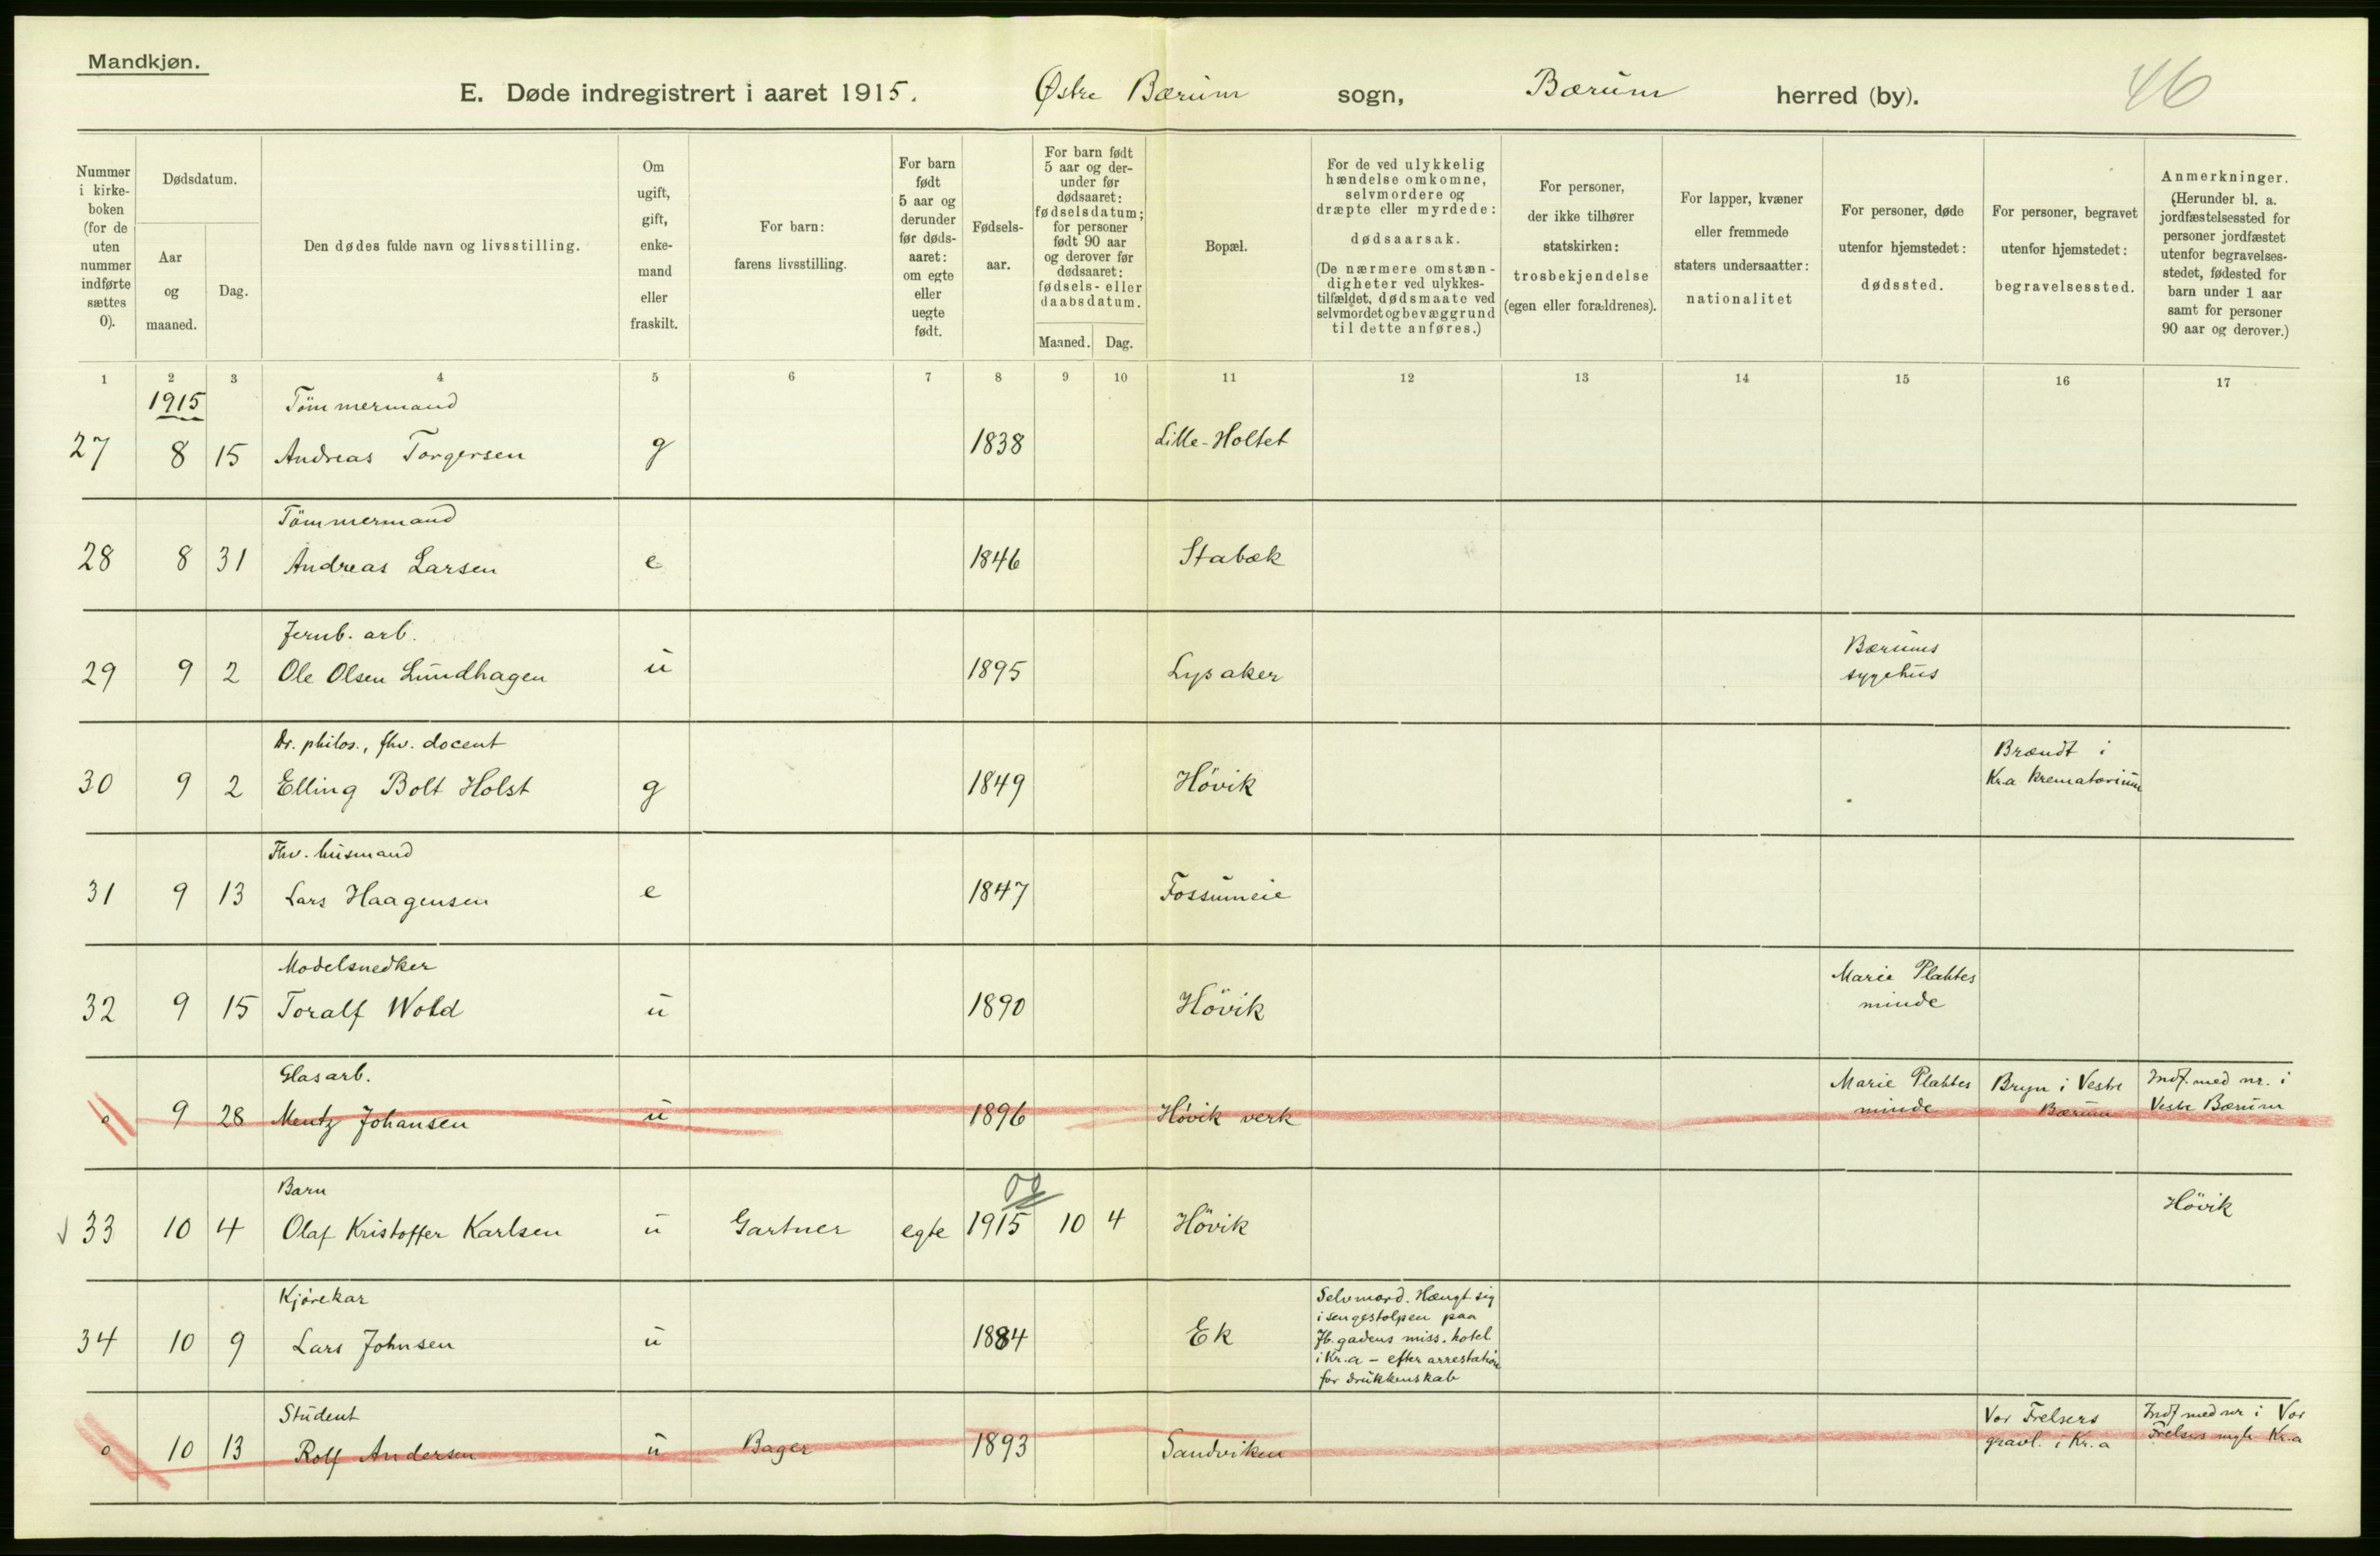 Mandkjøn.
E. Døde indregistrert i aaret 1915. Østre Bærum sogn, Bærum herred (by). 46
Nummer i kirkeboken (for de uten nummer indførte sættes 0).
Dødsdatum.
Aar og maaned.
Dag.
Den dødes fulde navn og livsstilling.
Om ugift, gift, enkemand eller fraskilt.
For barn: farens livsstilling.
For barn født 5 aar og derunder før dødsaaret: om egte eller uegte født.
Fødselsaar.
For barn født 5 aar og derunder før dødsaaret: fødselsdatum; for personer født 90 aar og derover før dødsaaret: fødsels- eller daabsdatum.
Maaned. Dag.
Bopæl.
For de ved ulykkelig hændelse omkomne, selvmordere og dræpte eller myrdede: dødsaarsak. (De nærmere omstændigheter ved ulykkestilfældet, dødsmaate ved selvmordet og bevæggrund til dette anføres.)
For personer, der ikke tilhører statskirken: trosbekjendelse (egen eller forældrenes).
For lapper, kvæner eller fremmede staters undersaatter: nationalitet
For personer, døde utenfor hjemstedet: dødssted.
For personer, begravet utenfor hjemstedet: begravelsessted.
Anmerkninger. (Herunder bl. a. jordfæstelsessted for personer jordfæstet utenfor begravelsesstedet, fødested for barn under 1 aar samt for personer 90 aar og derover.)
1 2 3 4 5 6 7 8 9 10 11 12 13 14 15 16 17
1915 Tömmermand
27 8 15 Andreas Torgersen g 1838 Lille-Holtet
Tömmermand
28 8 31 Andreas Larsen e 1846 Stabæk
Jernb. arb.
29 9 2 Ole Olsen Lundhagen u 1895 Lysaker Bærums sygehus
Dr. philos., fhv. docent
30 9 2 Elling Bolt Holst g 1849 Hövik Brændt i Kr.a krematorium
Fhv. husmand
31 9 13 Lars Haagensen e 1847 Fossumeie
Modelsnedker
32 9 15 Toralf Wold u 1890 Hövik Marie Plahtes minde
Glasarb.
0 9 28 Mentz Johansen u 1896 Hövik verk Marie Plahtes minde Bryn i Vestre Bærum Indf. med nr. i Vestre Bærum
Barn
33 10 4 Olaf Kristoffer Karlsen u Gartner egte 1915 10 4 Hövik Hövik
Kjørekar
34 10 9 Lars Johnsen u 1884 Ek Selvmord. Hængt sig
i sengestolpen paa
gadens miss. hotel
i Kr.a – efter arrestation
for drukkenskab
Student
0 10 13 Rolf Andersen u Bager 1893 Sandviken Vor Frelsers gravl. i Kr.a Indf med nr i Vor Frelsers mgh Kr.a